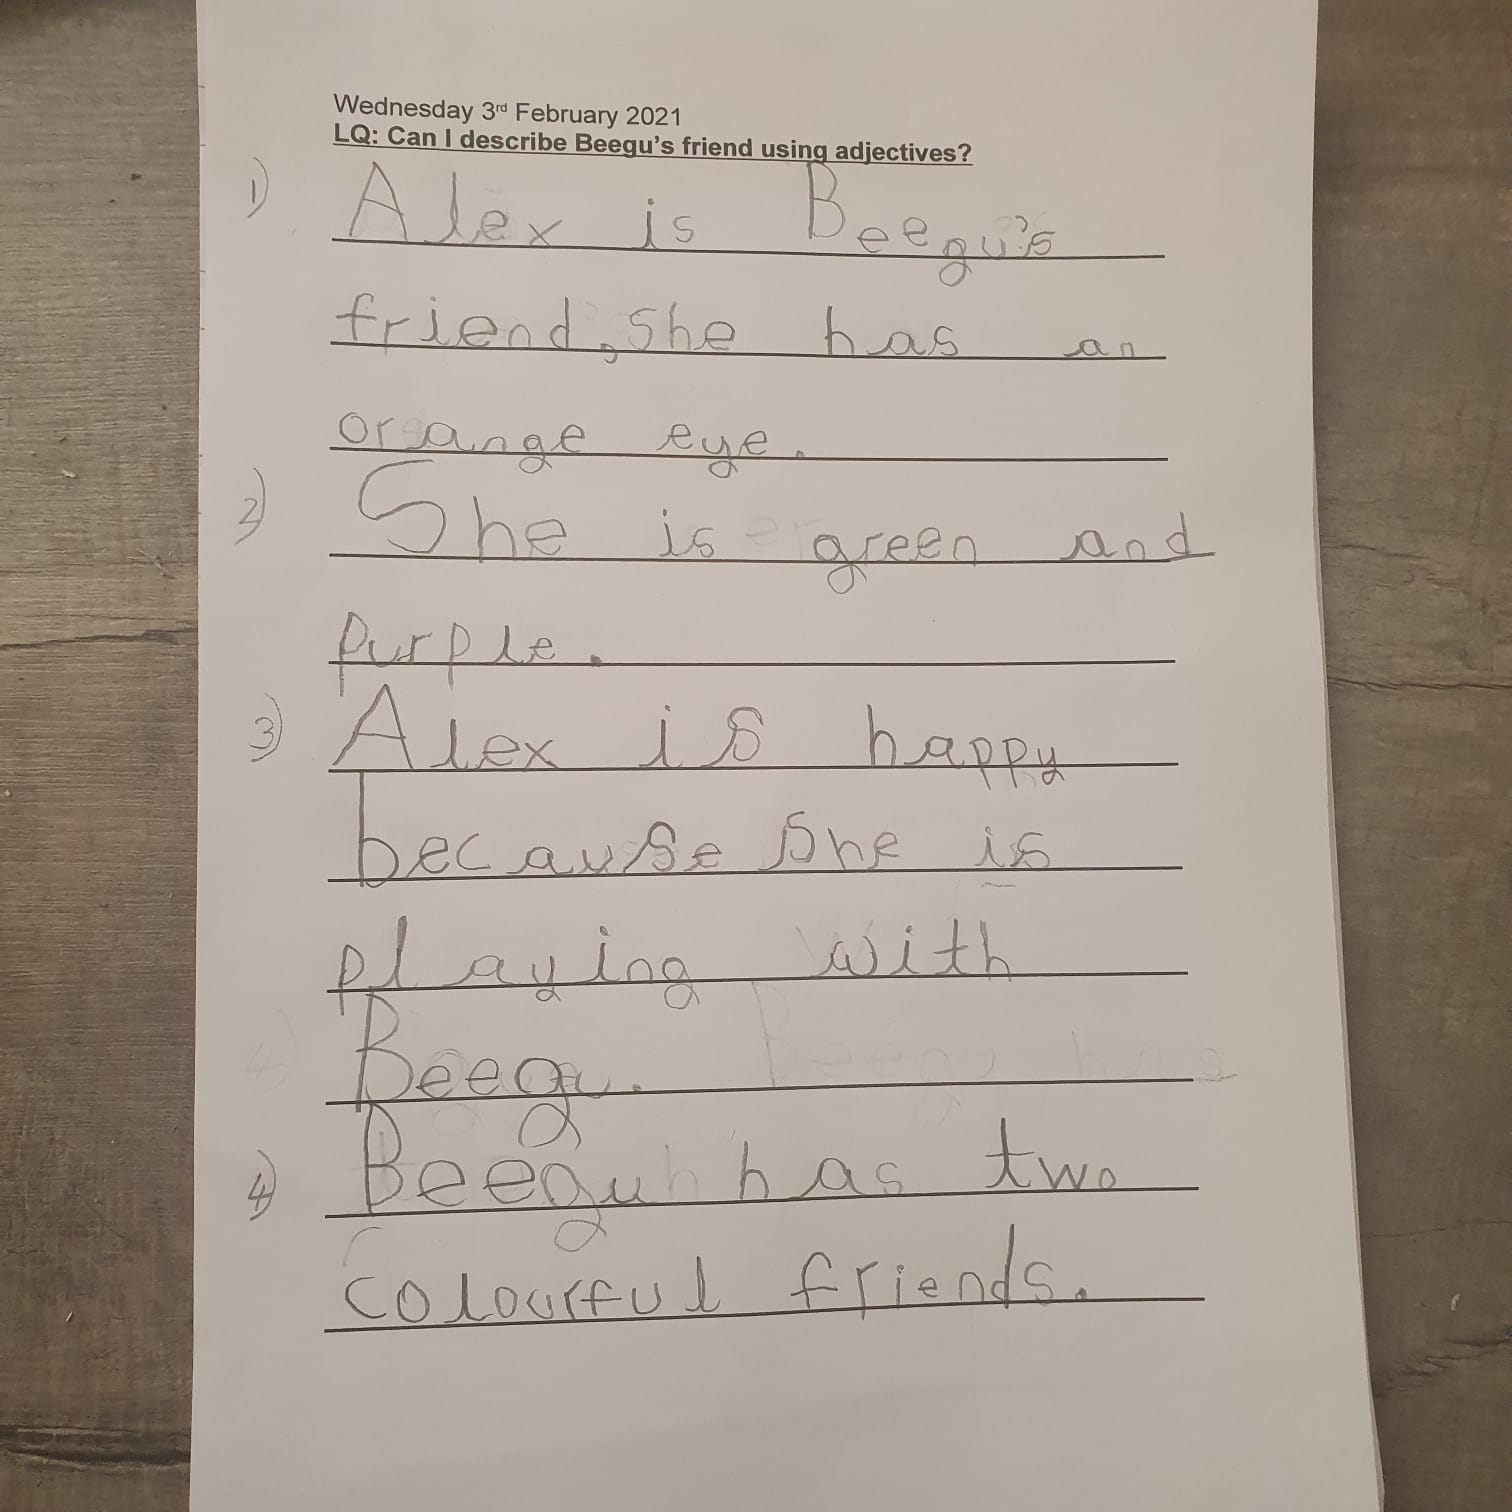 Wednesday 3rd February 2021
LQ: Can I describe Beegu's friend using adjectives?
1) Alex is Beegu's
friend, she has an
orange eye.
2) She is green and
purple.
3) Alex is happy
because she is
playing with
Beegu.
4) Beegu has two
colourful friends.